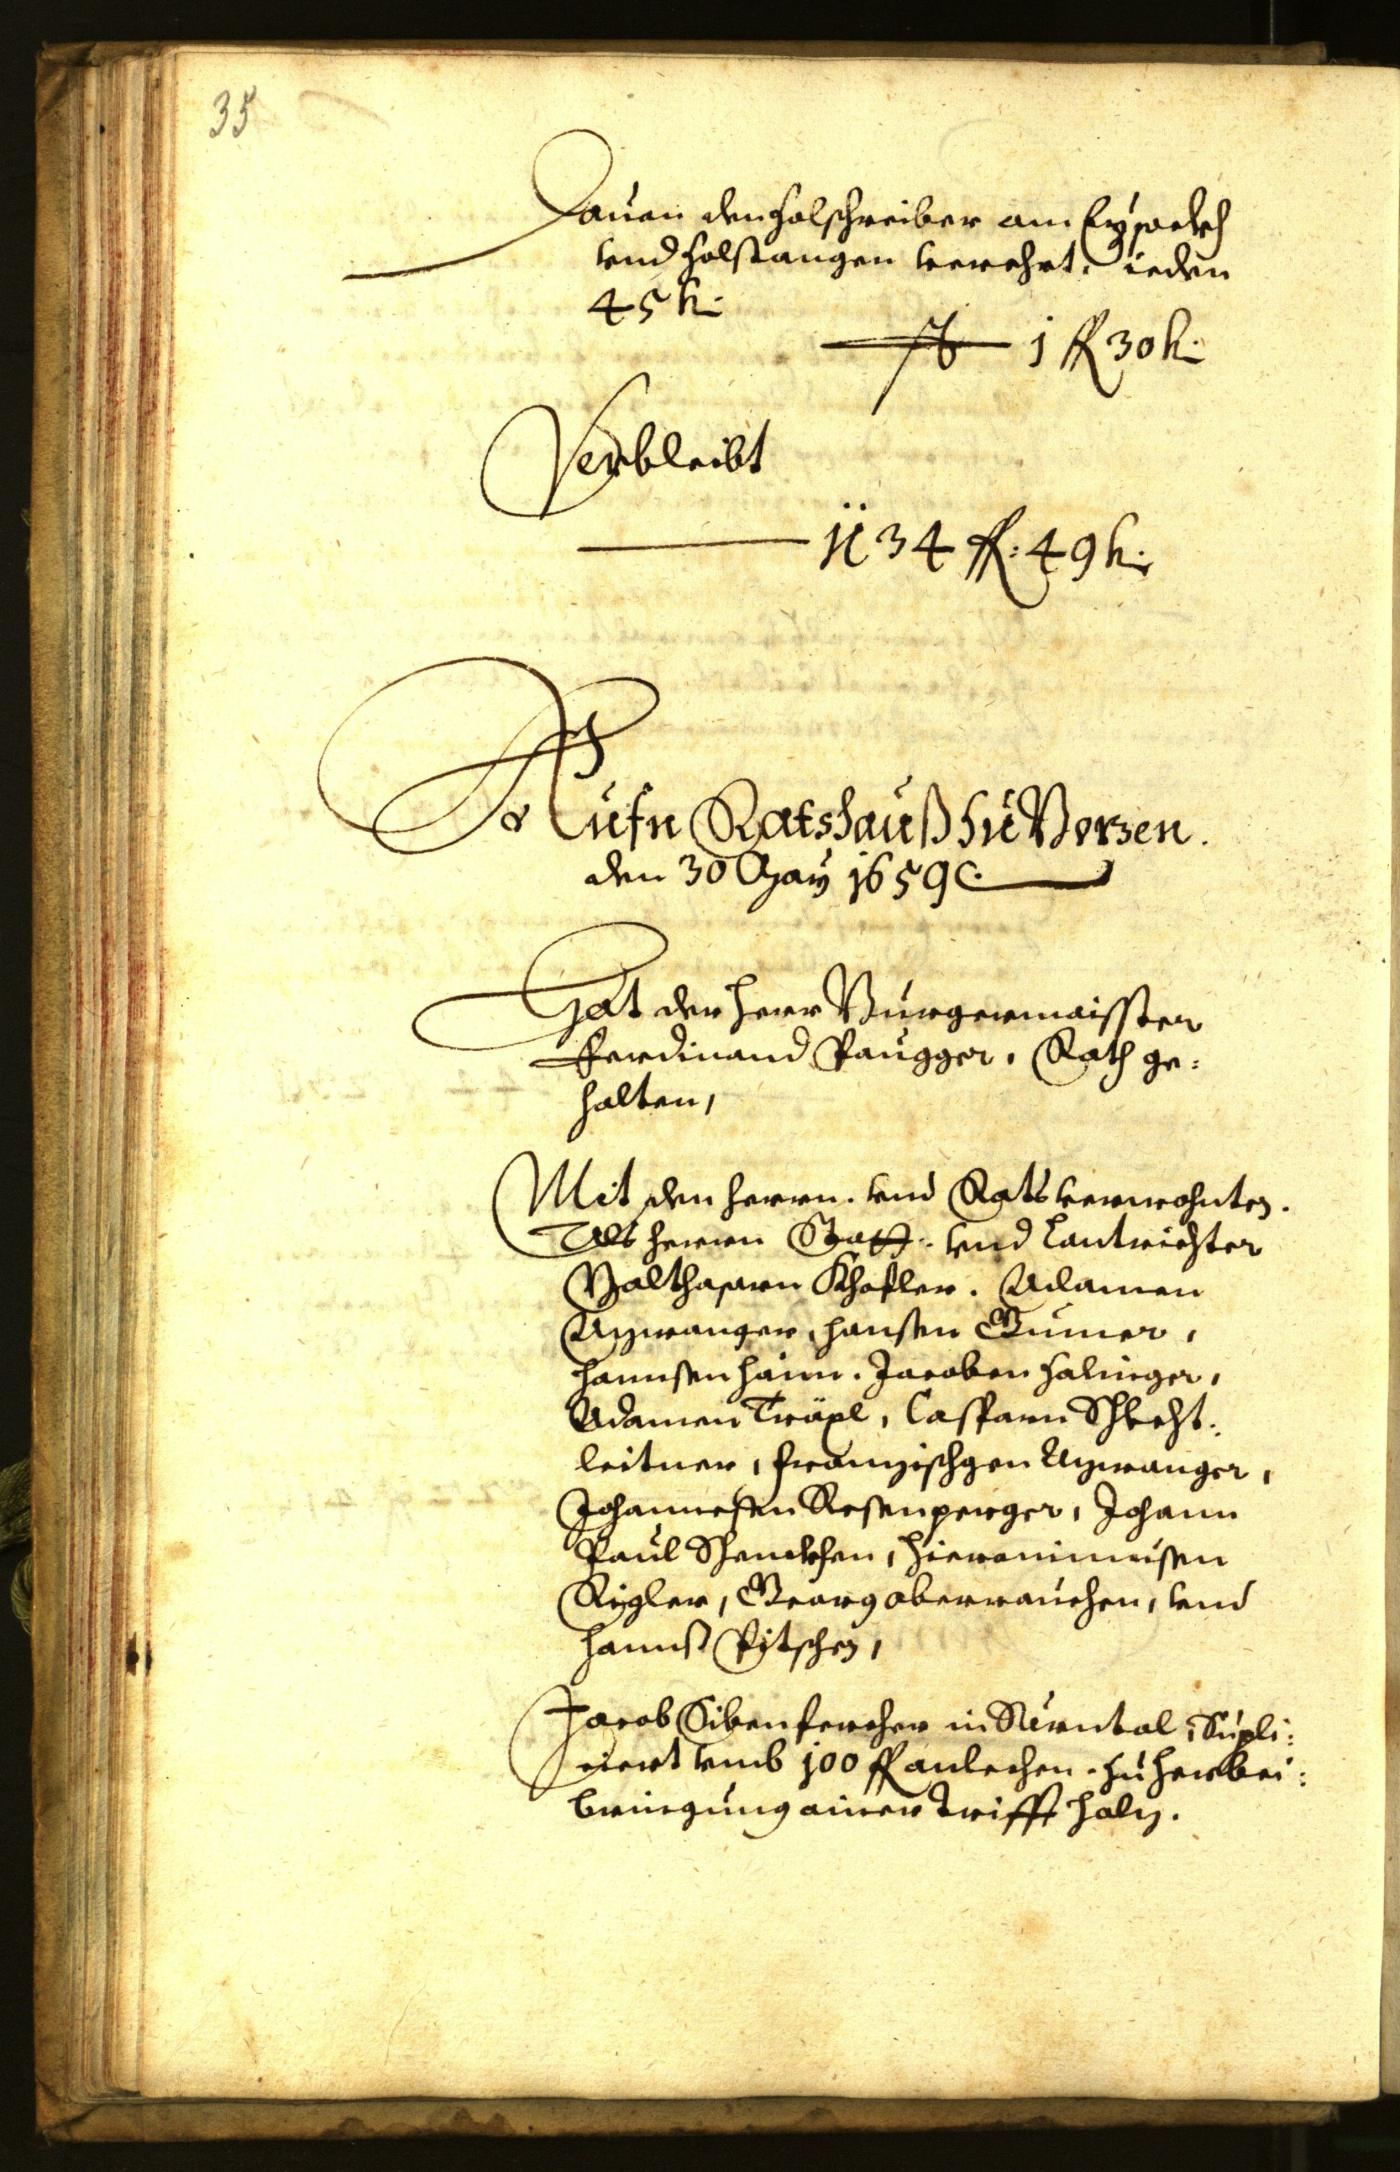 35
Dauon den Zolschreiber am Eysackh
vnd Zolstangen verehrt. ieden
45 k:
1 fl 30 k:
Verbleibt
1134 fl: 49 k:
Aufn Ratshauß zu Bozen.
den 30 May 1659
Hat der Herr Burgermaisster
Ferdinand Paugger, Rath ge:
halten,
Mit den Herrn. vnd Ratsverwohnten.
Als Herrn Statt. vnd Lantrichter
Balthasarn Khofler. Adamen
Azwanger, Hansen Gumer,
Hannsen Haim. Jacoben Zalinger,
Adamen Träpl, Casparn Schlecht:
leitner, Franzischgen Azwanger,
Johannesen Rosenperger, Johann
Paul Schenckhen, Hieronimusen
Rigler, Georg oberrauchen, vnd
Hannß Pitschen,
Jacob Sibenfercher in Särntal, Supli:
ciert vmb 100 fl anlechen. zu herbei:
bringung ainer Trifft Holz.